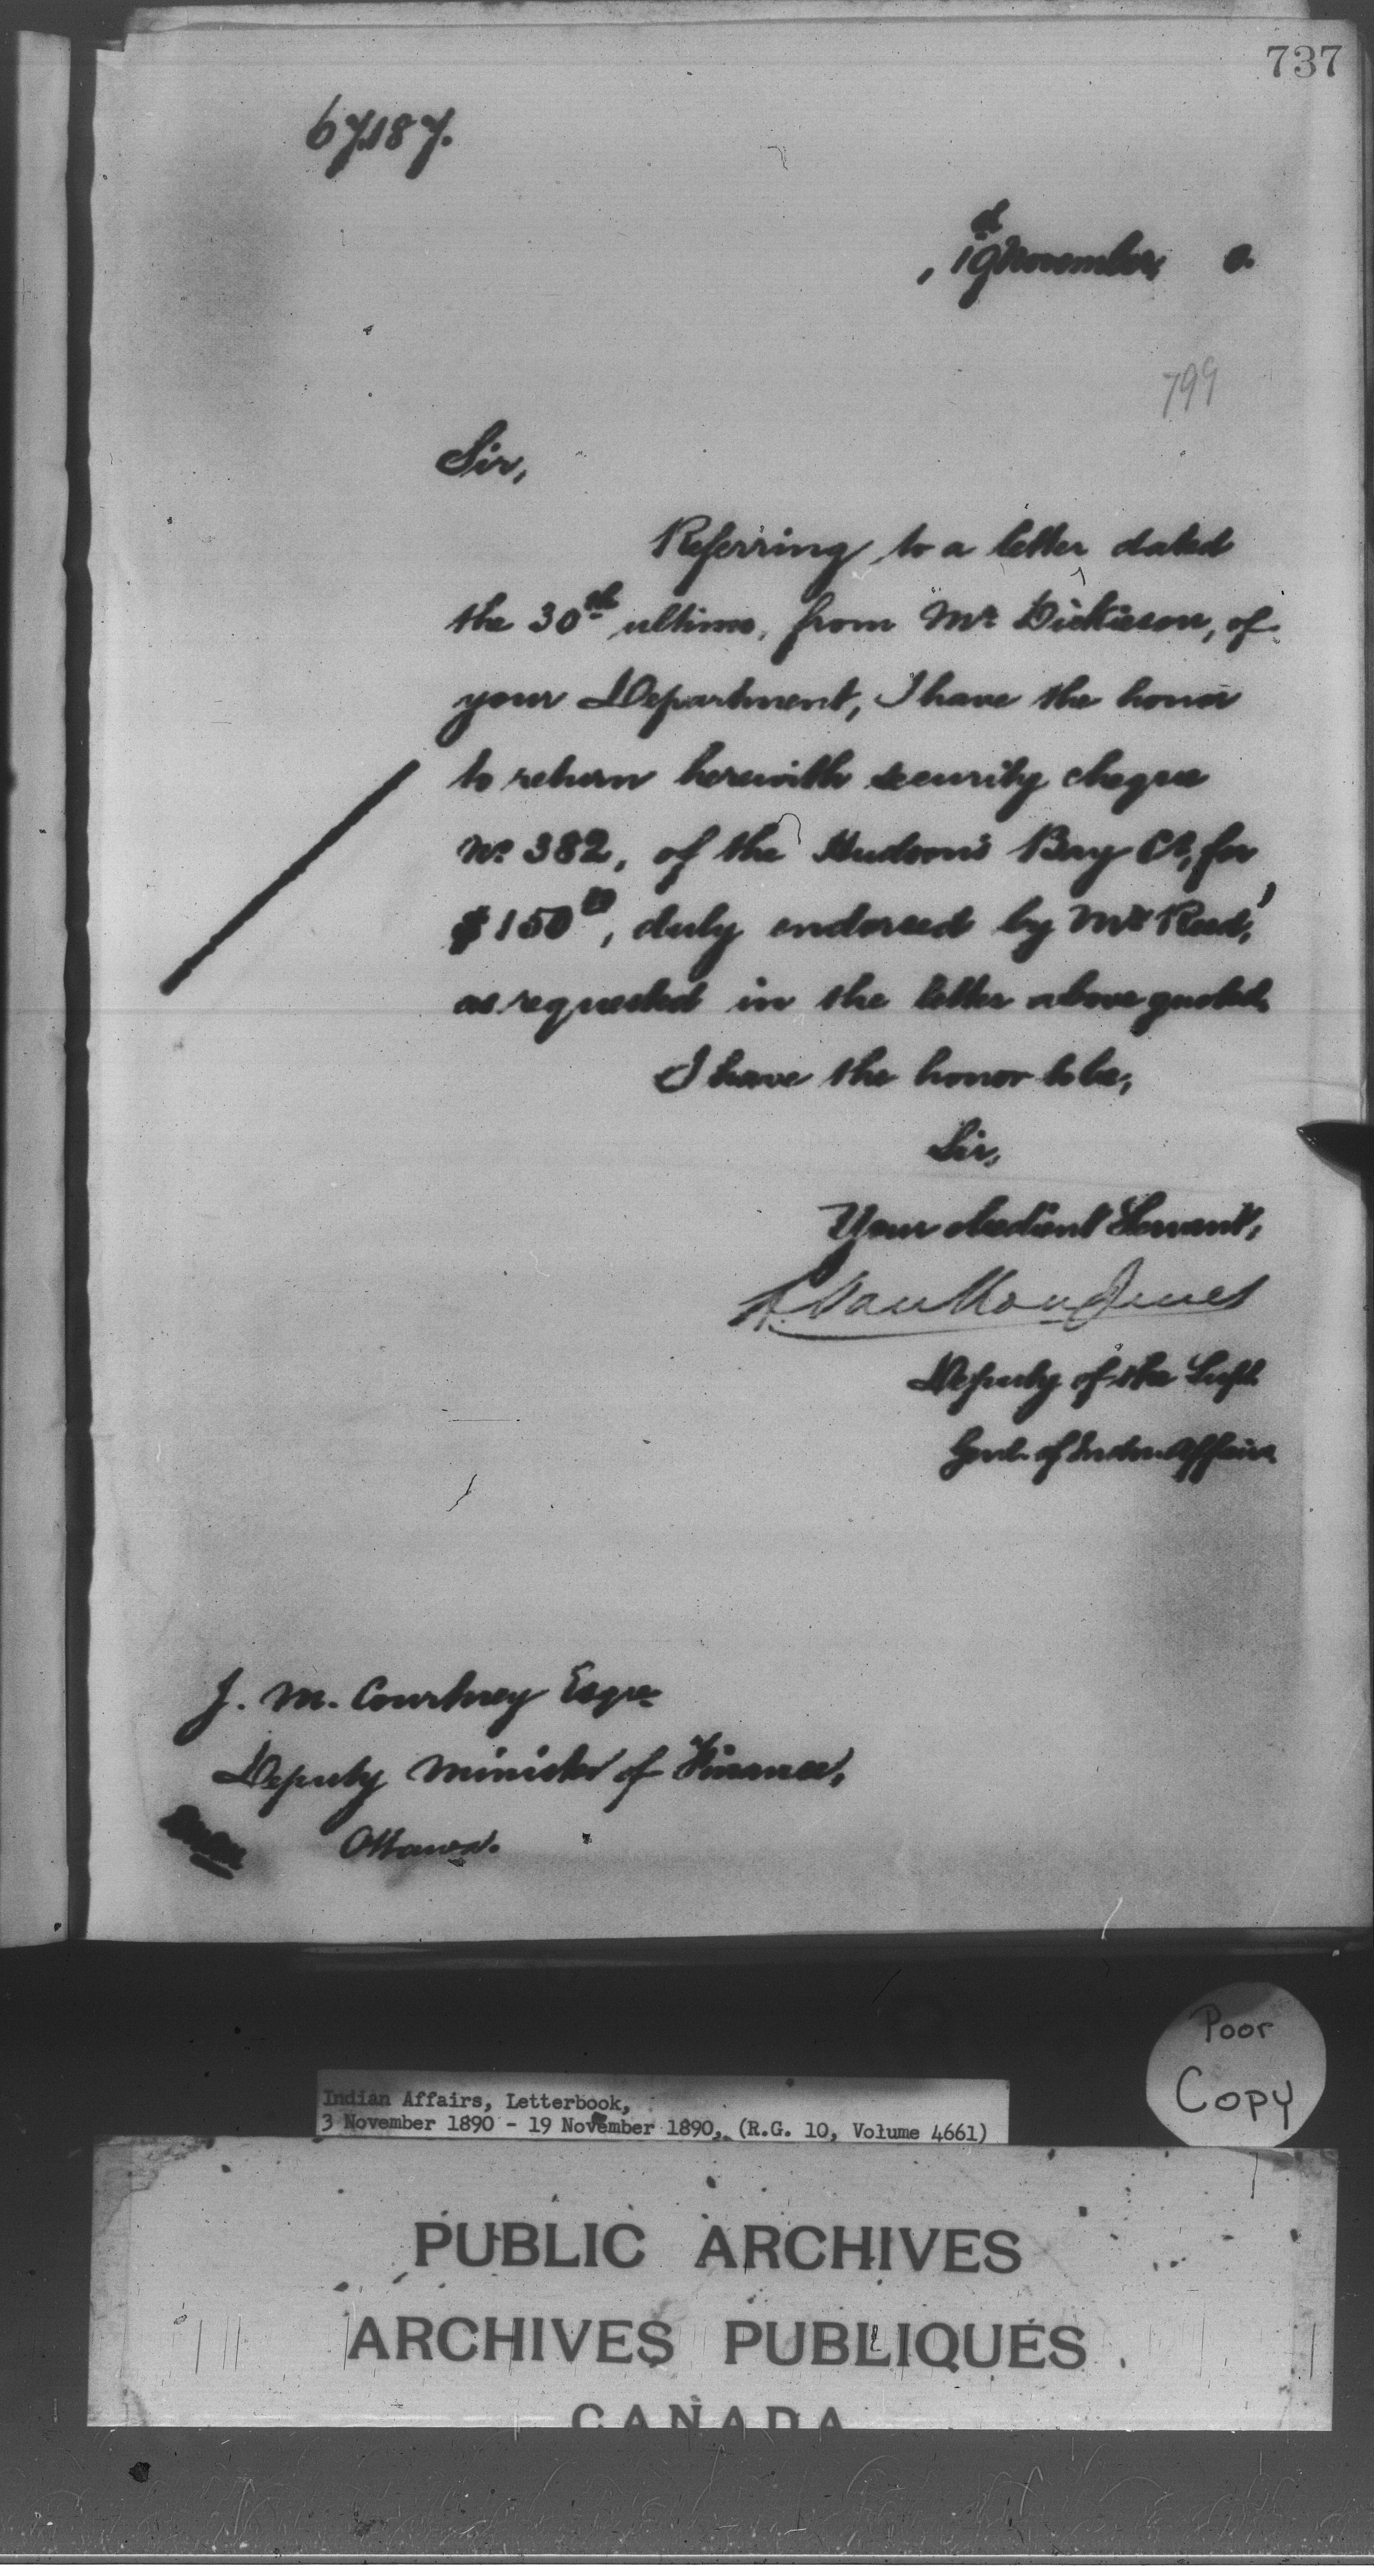 737
67,187.
, 19th November, 0.
799
Sir,
Referring to a letter dated
the 30th ultimo, from Mr Dickieson, of
your Department, I have the honor
to return herewith security cheque
No 382, of the Hudson's Bay Co, for
$150 00, duly endorsed by Mr Reed,
as requested in the letter above quoted.
I have the honor to be,
Sir,
Your obedient Servant,
L. VanKoughnet
Deputy of the Supt.
Genl. of Indn. Affairs
J. M. Courtney Esqre
Deputy Minister of Finance,
Ottawa.
Poor
Copy
Indian Affairs, Letterbook,
3 November 1890 - 19 November 1890, (R.G. 10, Volume 4661)
PUBLIC ARCHIVES
ARCHIVES PUBLIQUES
CANADA